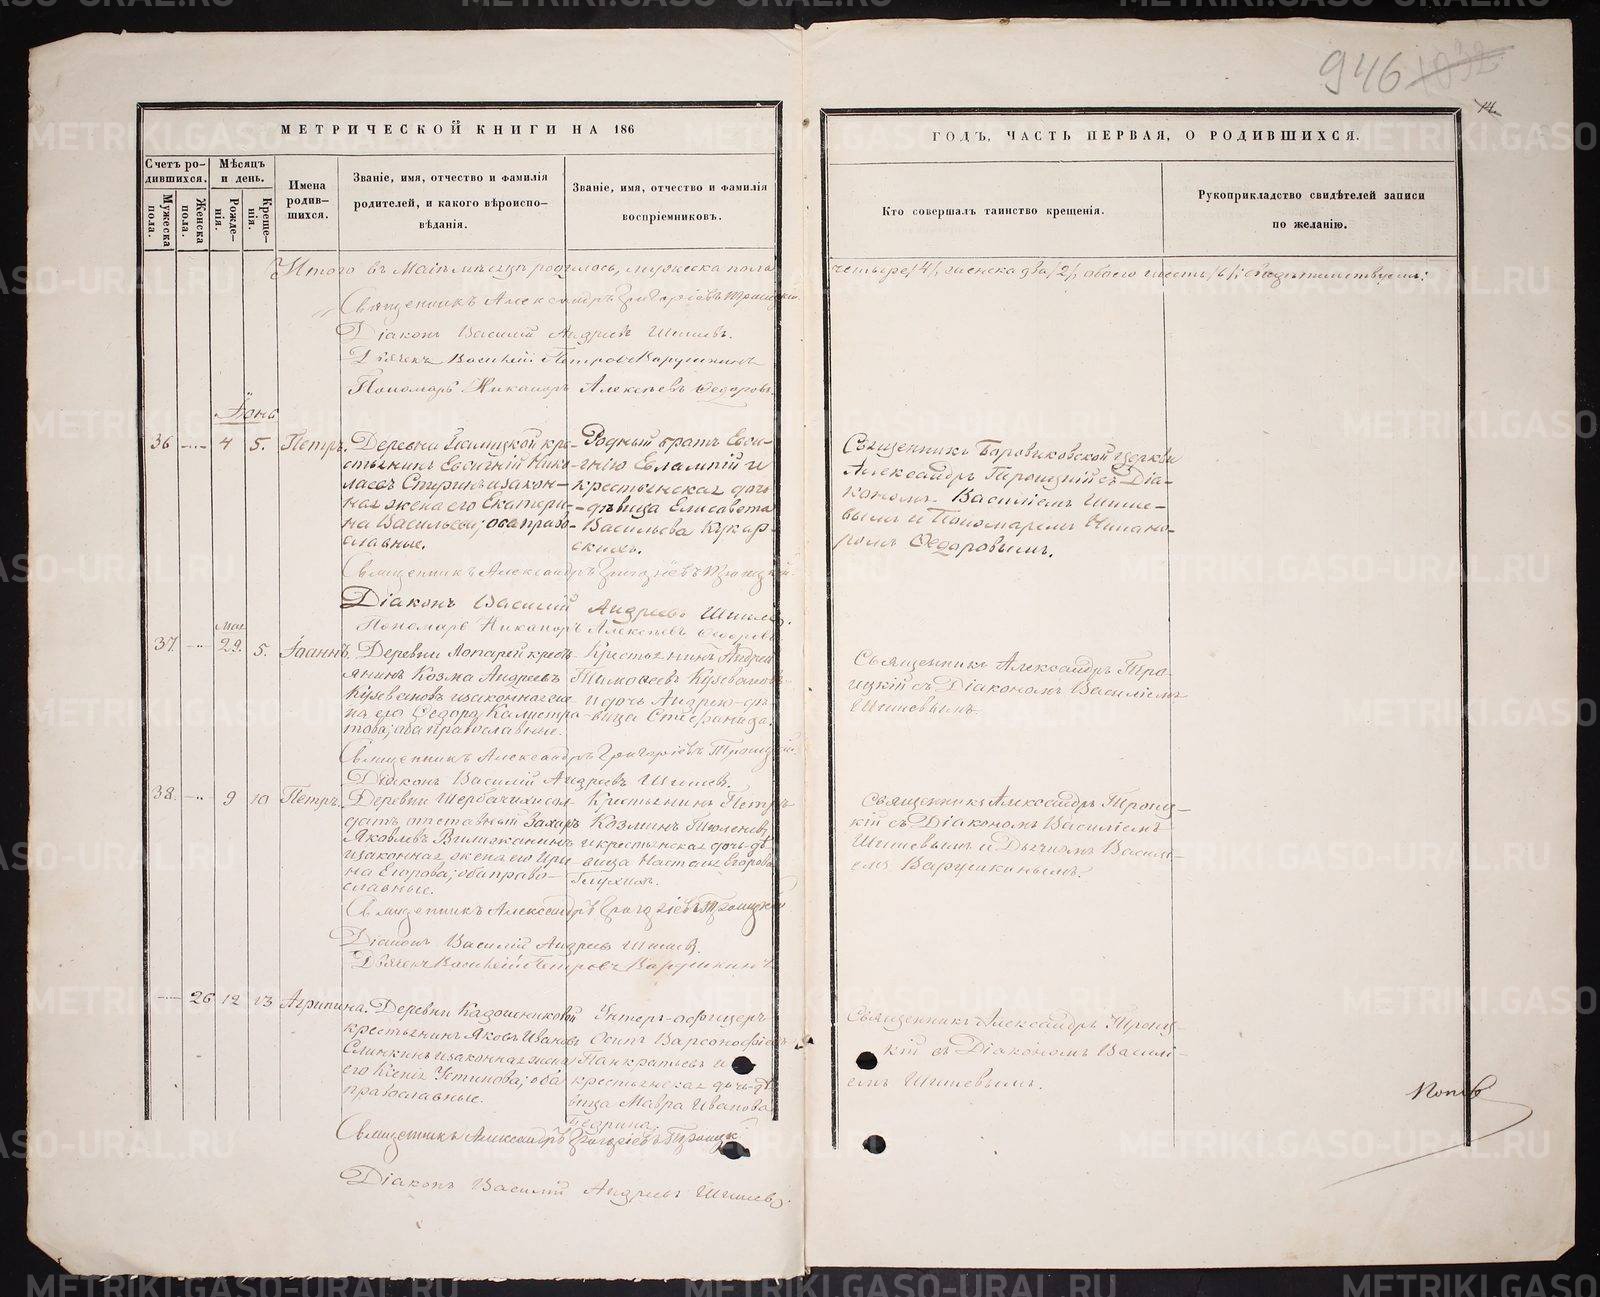 946 1832
14.
МЕТРИЧЕСКОЙ КНИГИ НА 186
ГОДЪ, ЧАСТЬ ПЕРВАЯ, О РОДИВШИХСЯ.
Счетъ ро-
дившихся.
Мужеска
пола.
Женска
пола.
Мѣсяцъ
и день.
Рожде-
нія.
Креще-
нія.
Имена
родив-
шихся.
Званіе, имя, отчество и фамилія
родителей, и какого вѣроиспо-
вѣданія.
Званіе, имя, отчество и фамилія
воспріемниковъ.
Кто совершалъ таинство крещенія.
Рукоприкладство свидѣтелей записи
по желанію.
Итого въ Маіѣ мѣсяцѣ родилось, мужеска пола
четыре /4/, женска два /2/, обоего шесть /6/; свидѣтельствуемъ:
Священникъ Александръ Григоріевъ Троицкій.
Діаконъ Василій Андреевъ Шишевъ.
Дьячекъ Василій Петровъ Варушкинъ
Пономарь Никаноръ Алексѣевъ Ѳедоровъ.
Іюнь
36 4 5. Петръ.
Деревни кре-
стьянинъ Евсигній Нико-
лаевъ и закон-
ная жена его Екатери-
на Васильева; оба право-
славные.
Родный братъ Евси-
гнію Евлампій и
крестьянская дочь
дѣвица Елисавета
Васильева Кукар-
скихъ.
Священникъ Боровиковской церкви
Александръ Троицкій съ Діа-
кономъ Василіемъ Шише-
вымъ и Пономаремъ Никано-
ромъ Ѳедоровымъ.
Священникъ Александръ Григоріевъ Троицкій.
Діаконъ Василій Андреевъ Шишевъ.
Пономарь Никаноръ Алексѣевъ Ѳедоровъ
Мая
37. 29. 5. Іоаннъ.
Деревни Лопарей кресть-
янинъ Козма Андреевъ
и законная же-
на его Ѳедора Калистра-
това; оба православные.
Крестьянинъ Андрей
Тимоѳеевъ
и дочь Андрею дѣ-
вица Стефанида.
Священникъ Александръ Трои-
цкій съ Діакономъ Василіемъ
Шишевымъ.
Священникъ Александръ Григоріевъ Троицкій
Діаконъ Василій Андреевъ Шишевъ.
38. 9 10 Петръ.
Деревни Щербачихи сол-
датъ отставный Захаръ
Яковлевъ
и законная жена его Ири-
на Егорова; оба право-
славные.
Крестьянинъ Петръ
Козминъ
и крестьянская дочь дѣ-
вица Настасья Егорова
Глухихъ.
Священникъ Александръ Троиц-
кій съ Діакономъ Василіемъ
Шишевымъ и Дьячкомъ Васили-
емъ Варушкинымъ.
Священникъ Александръ Григоріевъ Троицкій
Діаконъ Василій Андреевъ Шишевъ.
Дьячекъ Василій Петровъ Варушкинъ
26 12 13 Агрипина.
Деревни Кадошниковой
крестьянинъ Яковъ Ивановъ
Слинкинъ и законная жена
его Ксенія Устинова; оба
православные.
Унтеръ-офицеръ
Осипъ Варсонофіевъ
Панкратьевъ и
крестьянская дочь дѣ-
вица Мавра Иванова
Бедрина.
Священникъ Александръ Троиц-
кій съ Діакономъ Васили-
емъ Шишевымъ.
Священникъ Александръ Григоріевъ Троицкій
Діаконъ Василій Андреевъ Шишевъ.
METRIKI.GASO-URAL.RU